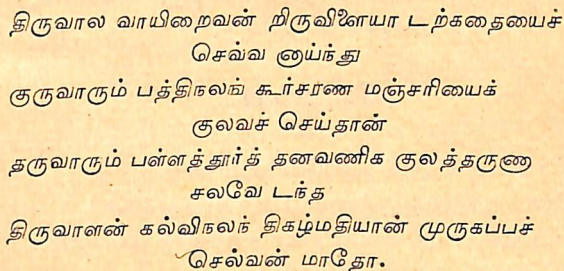 திருவால வாயிறைவன் றிருவிளையா டற்கதையைச்
செவ்வ னாய்ந்து
குருவாரும் பத்திநலங் கூர்சரண மஞ்சரியைக்
குலவச் செய்தான்
தருவாரும் பள்ளத்தூர்த் தனவணிக குலத்தருணா
சலவே டந்த
திருவாளன் கல்விநலந் திகழ்மதியான் முருகப்பச்
செல்வன் மாதோ.